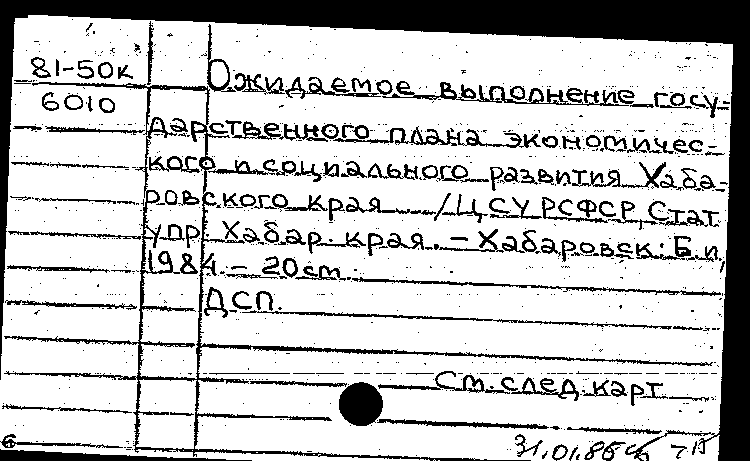 81-50к
6010
Ожидаемое выполнение госу-
дарственного плана экономичес-
кого и социального развития Хаба-
ровского края /ЦСУ РСФСР, Стат.
упр. Хабар. края. – Хабаровск: Б.и.,
1984 – 20 см.
ДСП.
См. след. карт
31.01.85